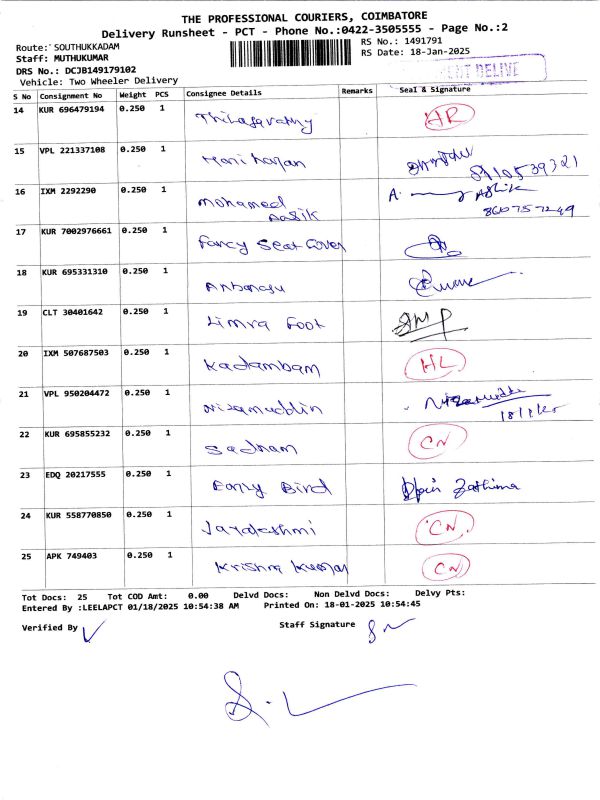 THE PROFESSIONAL COURIERS, COIMBATORE
Delivery Runsheet - PCT - Phone No.:0422-3505555 - Page No.:2
Route: SOUTHUKKADAM RS No.: 1491791
Staff: MUTHUKUMAR RS Date: 18-Jan-2025
DRS No.: DCJB149179102
Vehicle: Two Wheeler Delivery DELIVE
S No Consignment No Weight PCS Consignee Details Remarks Seal & Signature
14 KUR 696479194 0.250 1 Thilagavathy HR
15 VPL 221337108 0.250 1 Manikandan
16 IXM 2292290 0.250 1 Mohamed Aasik A. Ashik
8667557249
17 KUR 7002976661 0.250 1 Fancy Seat Cover
18 KUR 695331310 0.250 1 Anbarasu
19 CLT 30401642 0.250 1 Limra Foot
20 IXM 507687503 0.250 1 Kadambam HL
21 VPL 950204472 0.250 1 Nizamuddin
22 KUR 695855232 0.250 1 Sadham CN
23 EDQ 20217555 0.250 1 Early Bird Fathima
24 KUR 558770850 0.250 1 Jayalakshmi CN
25 APK 749403 0.250 1 Krishna Kumar CN
Tot Docs: 25 Tot COD Amt: 0.00 Delvd Docs: Non Delvd Docs: Delvy Pts:
Entered By :LEELAPCT 01/18/2025 10:54:38 AM Printed On: 18-01-2025 10:54:45
Verified By Staff Signature